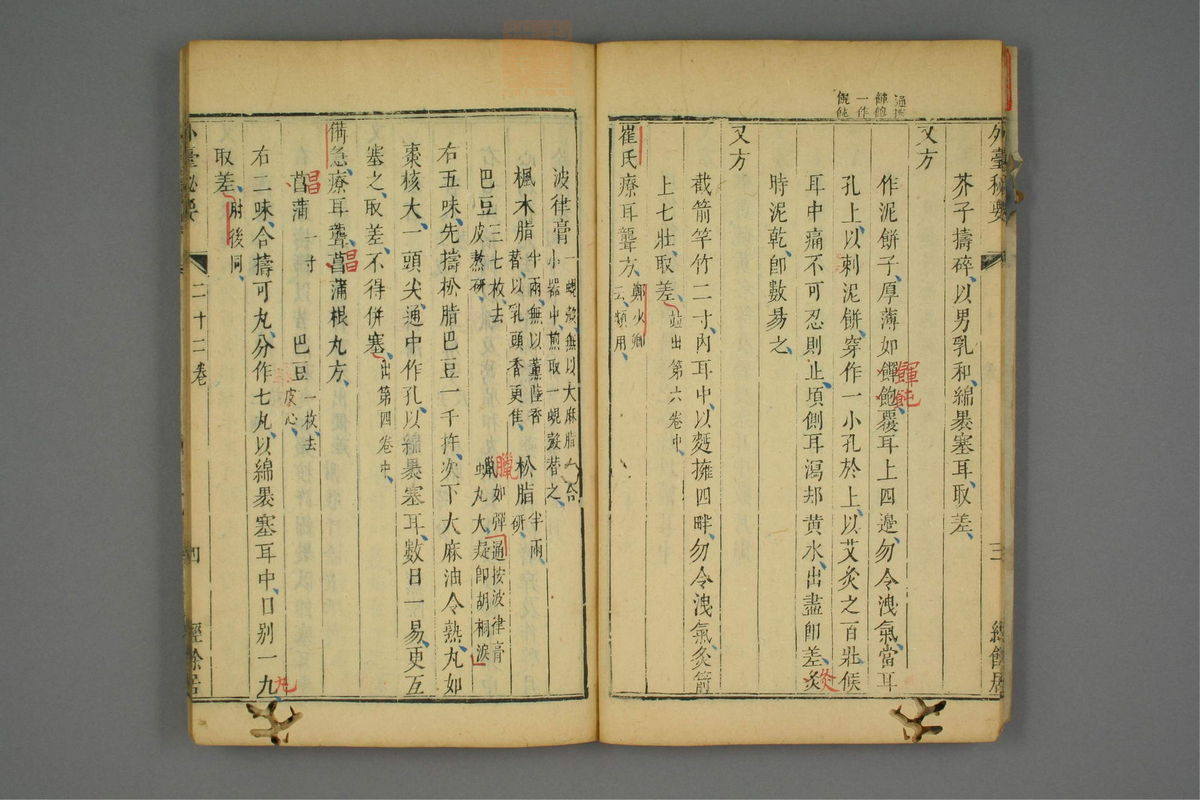 外臺秘要
三
經餘居
芥子擣碎以男乳和綿裹塞耳取差
又方
作泥餅子厚薄如饆飽覆耳上四邊勿令洩氣當耳
餫飩
一作
餛飩
孔上以刺泥餅穿作一小孔於上以艾灸之百壯候
耳中痛不可忍則止頃側耳瀉却黄水出盡即差灸
灸
時泥乾即數易之
又方
截箭竿竹二寸內耳中以麪擁四畔勿令洩氣灸箭
上七壯取差並出第六卷中
崔氏療耳聾方鄭火卿云頻用
波律膏一蜆殼無以大麻脂六合小器中煎取一蜆殼替之
楓木脂半兩無以薰陸香替以乳頭香更隹 松脂半兩研
巴豆三七枚去皮熬研 蠟如彈丸大 通按波律膏疑即胡桐淚
臘
右五味先擣松脂巴豆一千杵次下大麻油令熟丸如
棗核大一頭尖通中作孔以綿裹塞耳數日一易更互
塞之取差不得併塞出第四卷中
備急療耳聾菖蒲根丸方
昌
菖蒲一寸 巴豆一枚去皮心
昌
右二味合擣可丸分作七丸以綿裹塞耳中日别一九
丸
取差肘後同
外臺秘要
二十二卷
四
經餘居